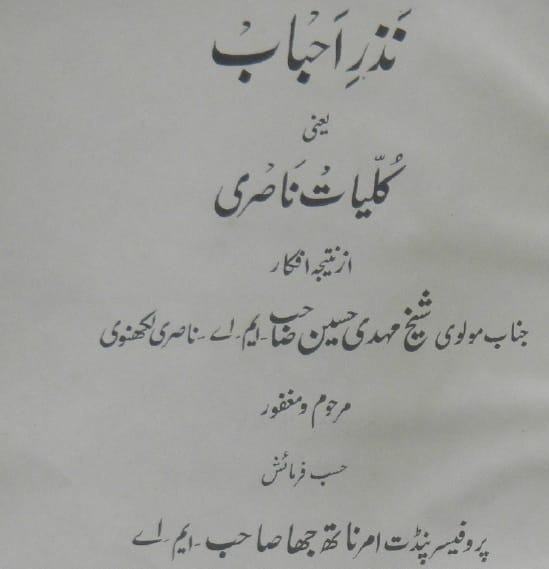 نَذرِ اَحْبابْ
یعنی
کُلّیاتْ نَاصْری
از نتیجہ افکار
جناب مولوی شیخ مہدی حسین صاحب۔ ایم۔ اے۔ ناصری لکھنوی
مرحوم و مغفور
حسب فرمائش
پروفیسر پنڈت امر ناتھ جھا صاحب۔ ایم۔ اے